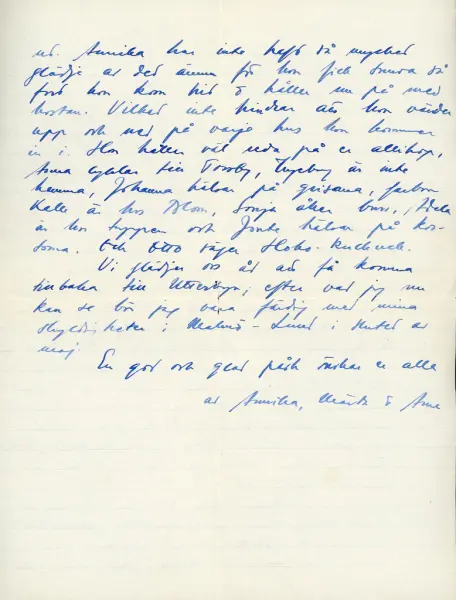 ut. Annika har inte haft så mycket
glädje av det ännu för hon fick snuva så
fort hon kom hit & håller nu på med
hostan. Vilket inte hindrar att hon vänder
upp och ned på varje hus hon kommer
in i. Hon håller väl reda på er allihop,
Anna cyklar till Torsby, Ingeborg är inte
hemma, Johanna hälsar på grisarna, farbror
Kalle är hos Blom, Sonja åker buss,
är hos tuppen och Jonte hälsar på kos-
sorna. Och Otto säger Hoho-kuckuck.
Vi glädjer oss åt att få komma
tillbaka till efter vad jag nu
kan se bör jag vara färdig med mina
skyldigheter i Malmö - Lund i slutet av
maj.
En god och glad påsk önskar er alla
av Annika, Märta & Arne